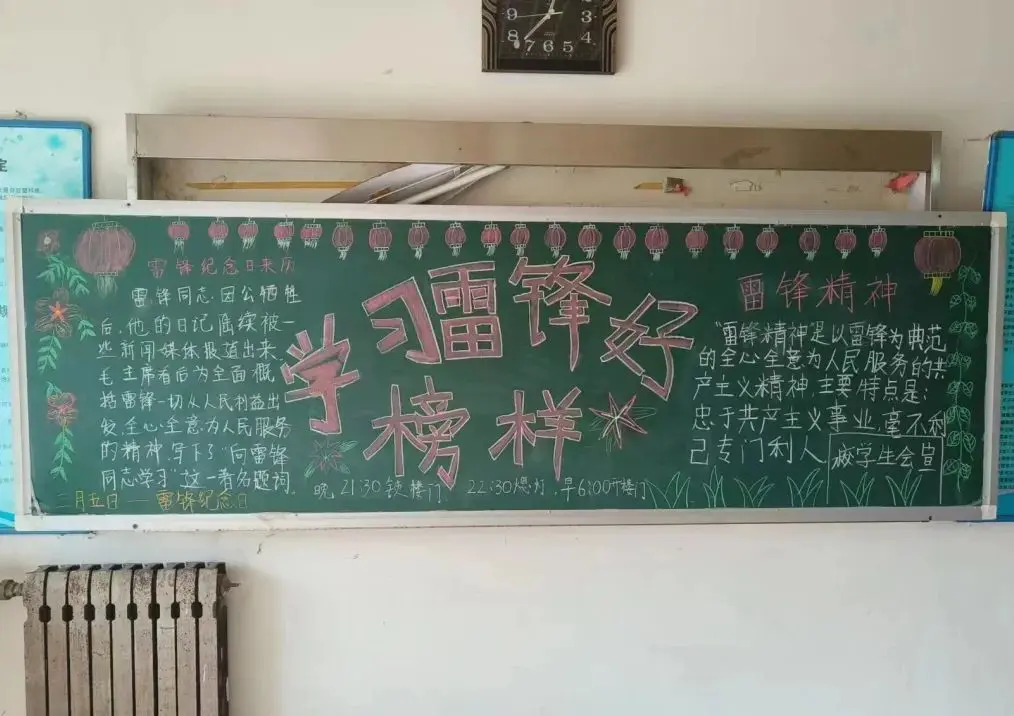 9
8
7
6
5
4
3
雷锋纪念日来历
雷锋同志因公牺牲
后,他的日记陆续被一
些新闻媒体报道出来,
毛主席看后为全面概
括雷锋一切从人民利益出
发,全心全意为人民服务
的精神,写下了“向雷锋
同志学习”这一著名题词。
三月五日——雷锋纪念日
学习雷锋好
榜样
晚 21:30锁楼门 22:30熄灯,早6:00开楼门
雷锋精神
“雷锋精神”是以雷锋为典范
的全心全意为人民服务的共
产主义精神,主要特点是:
忠于共产主义事业,毫不利
己专门利人
学生会宣